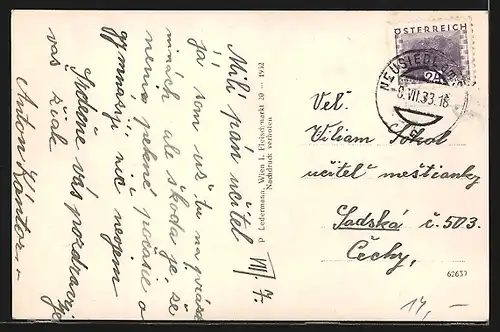 VII/7.
Milí pán učitel
Já som už tu na prázd
ninách, ale škoda je, že
nemia pekné počasie o
gymnasiji nič neviem
Srdečně vás pozdravuje
váš žiak
Anton Kántor
P. Ledermann, Wien I. Fleischmarkt 20 – 1932
Nachdruck verboten
ÖSTERREICH
24
NEUSIEDL
9.VII.33.18
Vel.
Viliam Sokol
učitel meštianky
Sadská č. 503.
Čechy,
62637
14,-